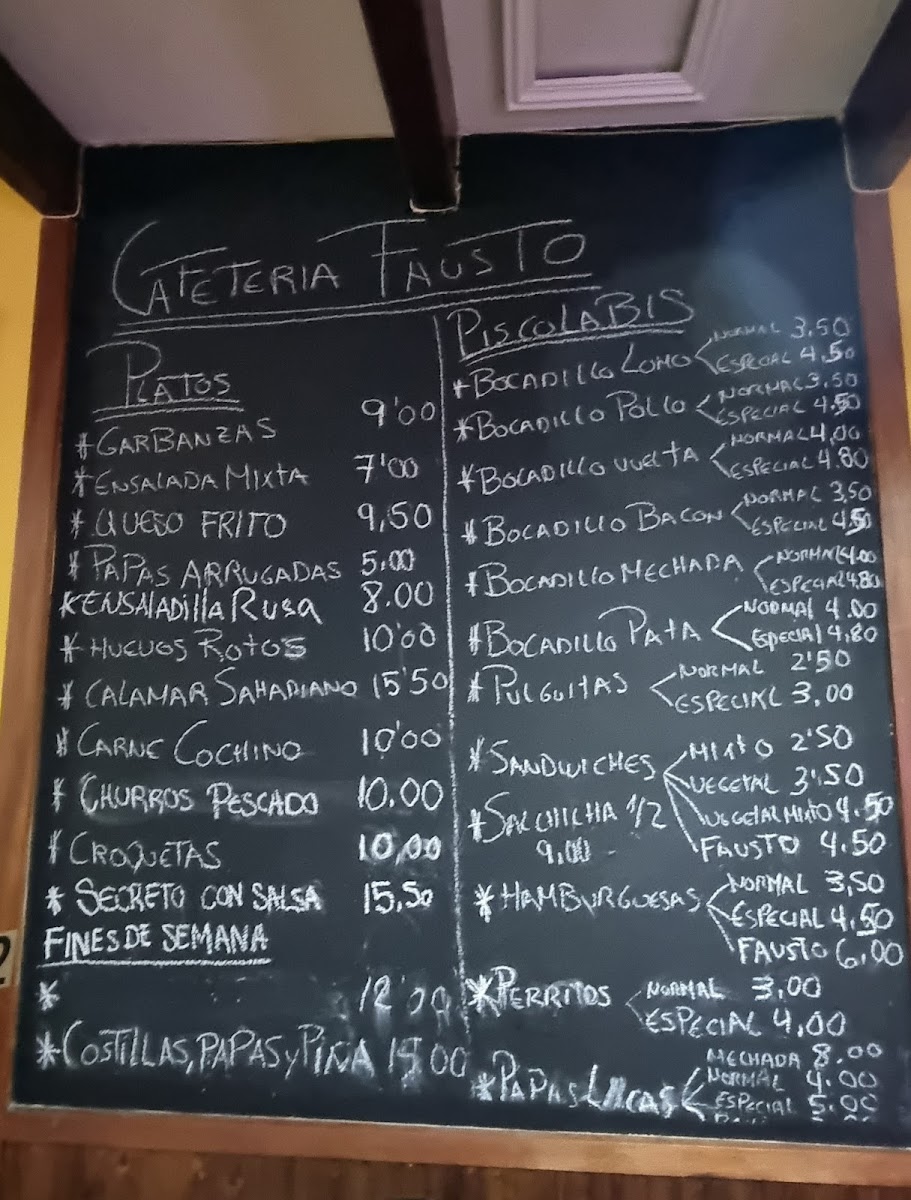 CAFETERIA FAUSTO
PLATOS
*GARBANZAS 9'00
*ENSALADA MIXTA 7'00
*QUESO FRITO 9,50
*PAPAS ARRUGADAS 5.00
*ENSALADIllA RUSA 8.00
*HUEVOS ROTOS 10'00
*CALAMAR SAHARIANO 15'50
*CARNE COCHINO 10'00
*CHURROS PESCADO 10,00
*CROQUETAS 10,00
*SECRETO CON SALSA 15,50
FINES DE SEMANA
* 12'00
*COSTILLAS, PAPAS y PIÑA 00
PISCOLABIS
*BOCADILLO LOMO NORMAL 3,50
ESPECIAL 4,50
*BOCADILLO POLLO NORMAL 3.50
ESPECIAL 4.50
*BOCADILLO VUELTA NORMAL 4,00
ESPECIAL 4.80
*BOCADILLO BACON NORMAL 3,50
ESPECIAL 4,50
*BOCADILLO MECHADA NORMAL 4.00
ESPECIAL 4.80
*BOCADILLO PATA NORMAL 4.00
ESPECIAL 4,80
*PULGUITAS NORMAL 2'50
ESPECIAL 3,00
*SANDWICHES MIXTO 2'50
VEGETAL 3'50
VEGETAL MIXTO 4.50
FAUSTO 4.50
*SALCHICHA 1/2
9,00
*HAMBURGUESAS NORMAL 3,50
ESPECIAL 4,50
FAUSTO 6,00
*PERRITOS NORMAL 3,00
ESPECIAL 4,00
*PAPAS LOCAS MECHADA 8.00
NORMAL 4.00
ESPECIAL 5.00